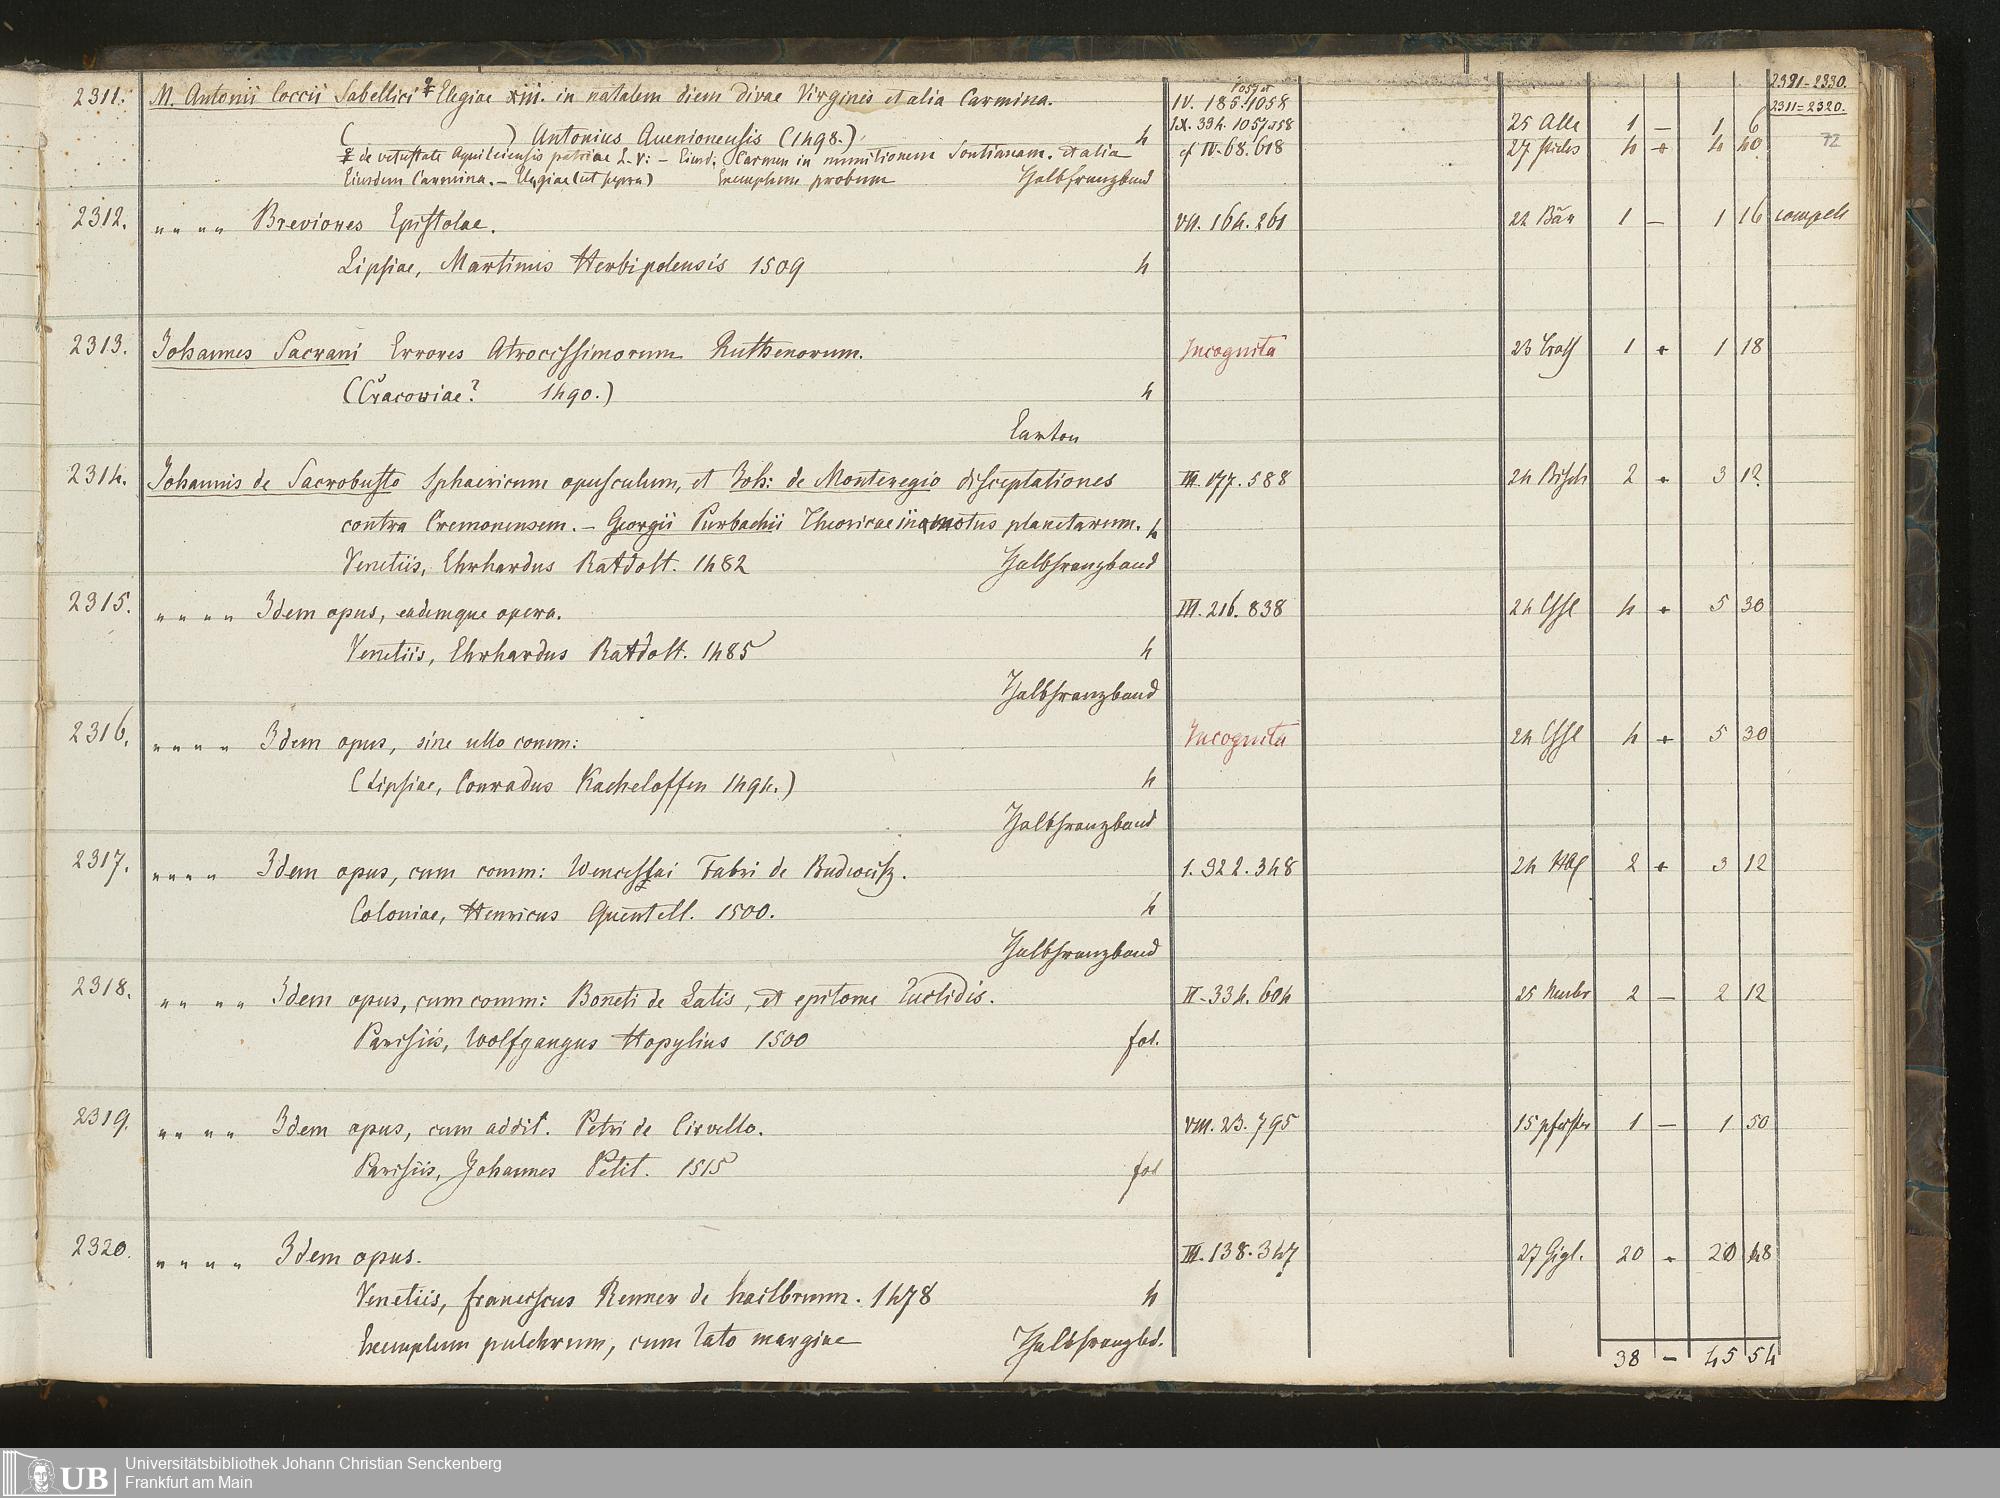 2321-2330.
2311=2320.
72
2311. M. Antonii Coccii Sabellici Elegiae xiii. in natalem diem divae Virginis et alia Carmina. IV. 185. 1058
1057 et
( ) Antonius Auenionensis (1498.) 4 IX. 334. 1057 a 58 25 Alle 1 – 1 6
de vetustate Aquileiensis patriae L. V: – Eiusd. Carmen in munitionem Sontianam. et alia cf IV. 68. 618 27 4 + 4 40
Eiusdem Carmina. – Elegiae (ut supra) Exemplum probum Halbfranzband
2312. " " " " Breviores Epistolae. VII. 164. 261 22 Bär 1 – 1 16 compl
Lipsiae, Martinus Herbipolensis 1509 4
2313. Johannes Sacrani Errores Atrocissimorum Ruthenorum. Incognita 23 1 + 1 18
(Cracowiae? 1490.) 4
Carton
2314. Johannis de Sacrobusto Sphaericum opusculum, et Joh: de Monteregio disceptationes III. 177. 588 24 Bisch 2 + 3 12
contra Cremonensem. – Georgii Purbachii Theoricae in motus planetarum. 4
Venetiis, Ehrhardus Ratdolt. 1482 Halbfranzband
2315. " " " " Idem opus, eademque opera. III. 216. 838 24 4 + 5 30
Venetiis, Ehrhardus Ratdolt. 1485 4
Halbfranzband
2316. " " " " Idem opus, sine ullo comm: Incognita 24 4 + 5 30
(Lipsiae, Conradus Kacheloffen 1494.) 4
Halbfranzband
2317. " " " " Idem opus, cum comm: Wenceslai Fabri de Budweisz. I. 322. 348 24 2 + 3 12
Coloniae, Henricus Quentell. 1500. 4
Halbfranzband
2318. " " " " Idem opus, cum comm: Boneti de Latis, et epitome Euclidis. II. 334. 604 25 2 – 2 12
Parisiis, Wolfgangus Hopylius 1500 fol.
2319. " " " " Idem opus, cum addit. Petri de Cirvello. VIII. 23. 795 15 1 – 1 50
Parisiis, Johannes Petit. 1515 fol
2320. " " " " Idem opus. III. 138. 347 27 Gigl. 20 + 20 48
Venetiis, franciscus Renner de hailbrunn. 1478 4
Exemplum pulchrum, cum lato margine Halbfranzbd.
38 – 45 54
UB Universitätsbibliothek Johann Christian Senckenberg
Frankfurt am Main